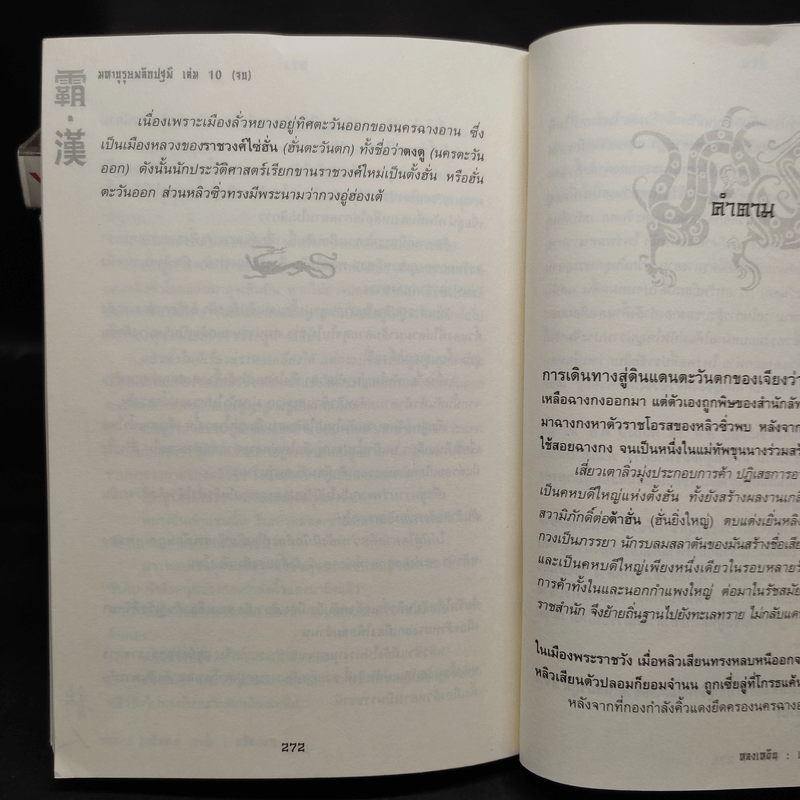 霸・漢
มหาบุรุษพลิกปฐพี เล่ม 10 (จบ)
เนื่องเพราะเมืองลั่วหยางอยู่ทิศตะวันออกของนครฉางอาน ซึ่ง
เป็นเมืองหลวงของราชวงศ์ไซ่ฮั่น (ฮั่นตะวันตก) ทั้งชื่อว่าตงตู (นครตะวัน
ออก) ดังนั้นนักประวัติศาสตร์เรียกขานราชวงศ์ใหม่เป็นตั้งฮั่น หรือฮั่น
ตะวันออก ส่วนหลิวซิ่วทรงมีพระนามว่ากวงอู่ฮ่องเต้
272
คำตาม
การเดินทางสู่ดินแดนตะวันตกของเจียงว่า
เหลือฉางกงออกมา แต่ตัวเองถูกพิษของสำนักลัท
มาฉางกงหาตัวราชโอรสของหลิวซิ่วพบ หลังจาก
ใช้สอยฉางกง จนเป็นหนึ่งในแม่ทัพขุนนางร่วมสร้
เสี่ยวเตาลิ่วมุ่งประกอบการค้า ปฏิเสธการอา
เป็นคหบดีใหญ่แห่งตั้งฮั่น ทั้งยังสร้างผลงานเกลี
สวามิภักดิ์ต่อต้าฮั่น (ฮั่นยิ่งใหญ่) ตบแต่งเยิ่นหลิง
กวงเป็นภรรยา นักรบลมสลาตันของมันสร้างชื่อเสีย
และเป็นคหบดีใหญ่เพียงหนึ่งเดียวในรอบหลายร้
การค้าทั้งในและนอกกำแพงใหญ่ ต่อมาในรัชสมัย
ราชสำนัก จึงย้ายถิ่นฐานไปยังทะเลทราย ไม่กลับแด
ในเมืองพระราชวัง เมื่อหลิวเสียนทรงหลบหนีออกจ
หลิวเสียนตัวปลอมก็ยอมจำนน ถูกเซี่ยลู่ที่โกรธแค้น
หลังจากที่กองกำลังคิ้วแดงยึดครองนครฉางอ
หลงเหลิน :